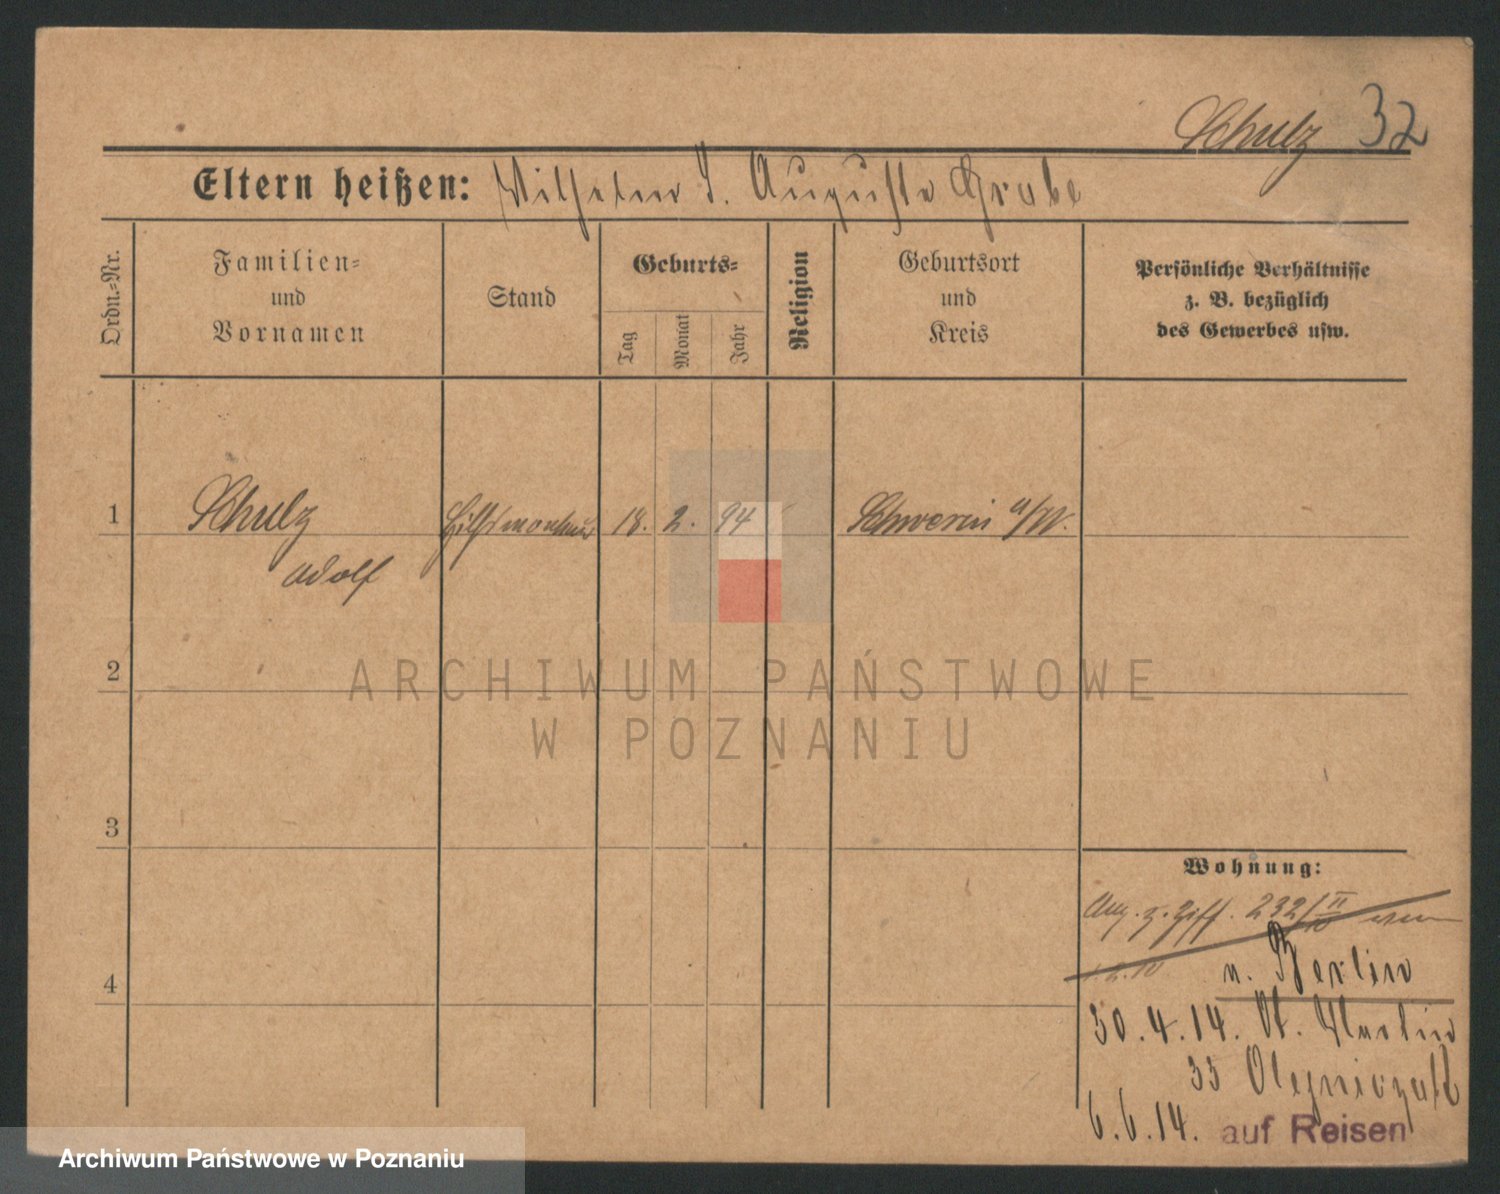 Schulz 32
Eltern heißen: Wilhelm S. Auguste Grabe
Ordn.-Nr.
Familien- und Vornamen
Stand
Geburts-
Tag
Monat
Jahr
Religion
Geburtsort und Kreis
Persönliche Verhältnisse
z. B. bezüglich
des Gewerbes usw.
1 Schulz Hilfsmonteur 18. 2. 94 Schwerin a/W.
Adolf
2
ARCHIWUM PAŃSTWOWE
W POZNANIU
3
Wohnung:
Ang. z. Ziff. 232/II
10
n. Berlin
4
30.4.14. St. Martin
33
6.6.14. auf Reisen
Archiwum Państwowe w Poznaniu